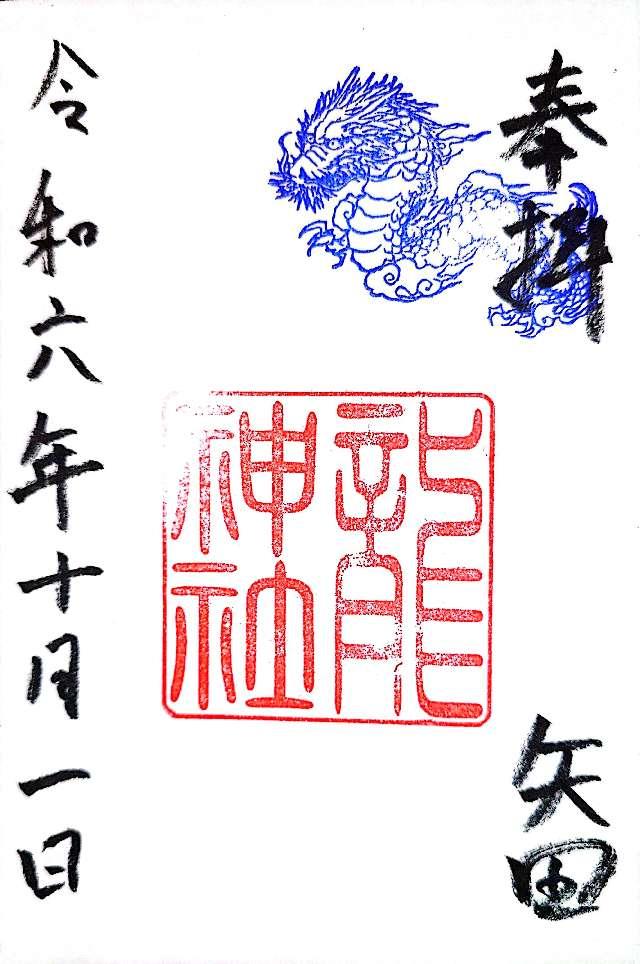 奉拝
矢田
龍
神社
令和六年十月一日